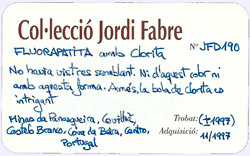 Col·lecció Jordi Fabre
FLUORAPATITA amb Clorita
Nº JFD190
No havia vist res semblant. Ni d'aquest color ni
amb aquesta forma. A més, la bola de clorita és
intrigant
Minas da Panasqueira, Covilhã,
Castelo Branco, Cova da Beira, Centro,
Portugal
Trobat: (±1997)
Adquisició: 11/1997